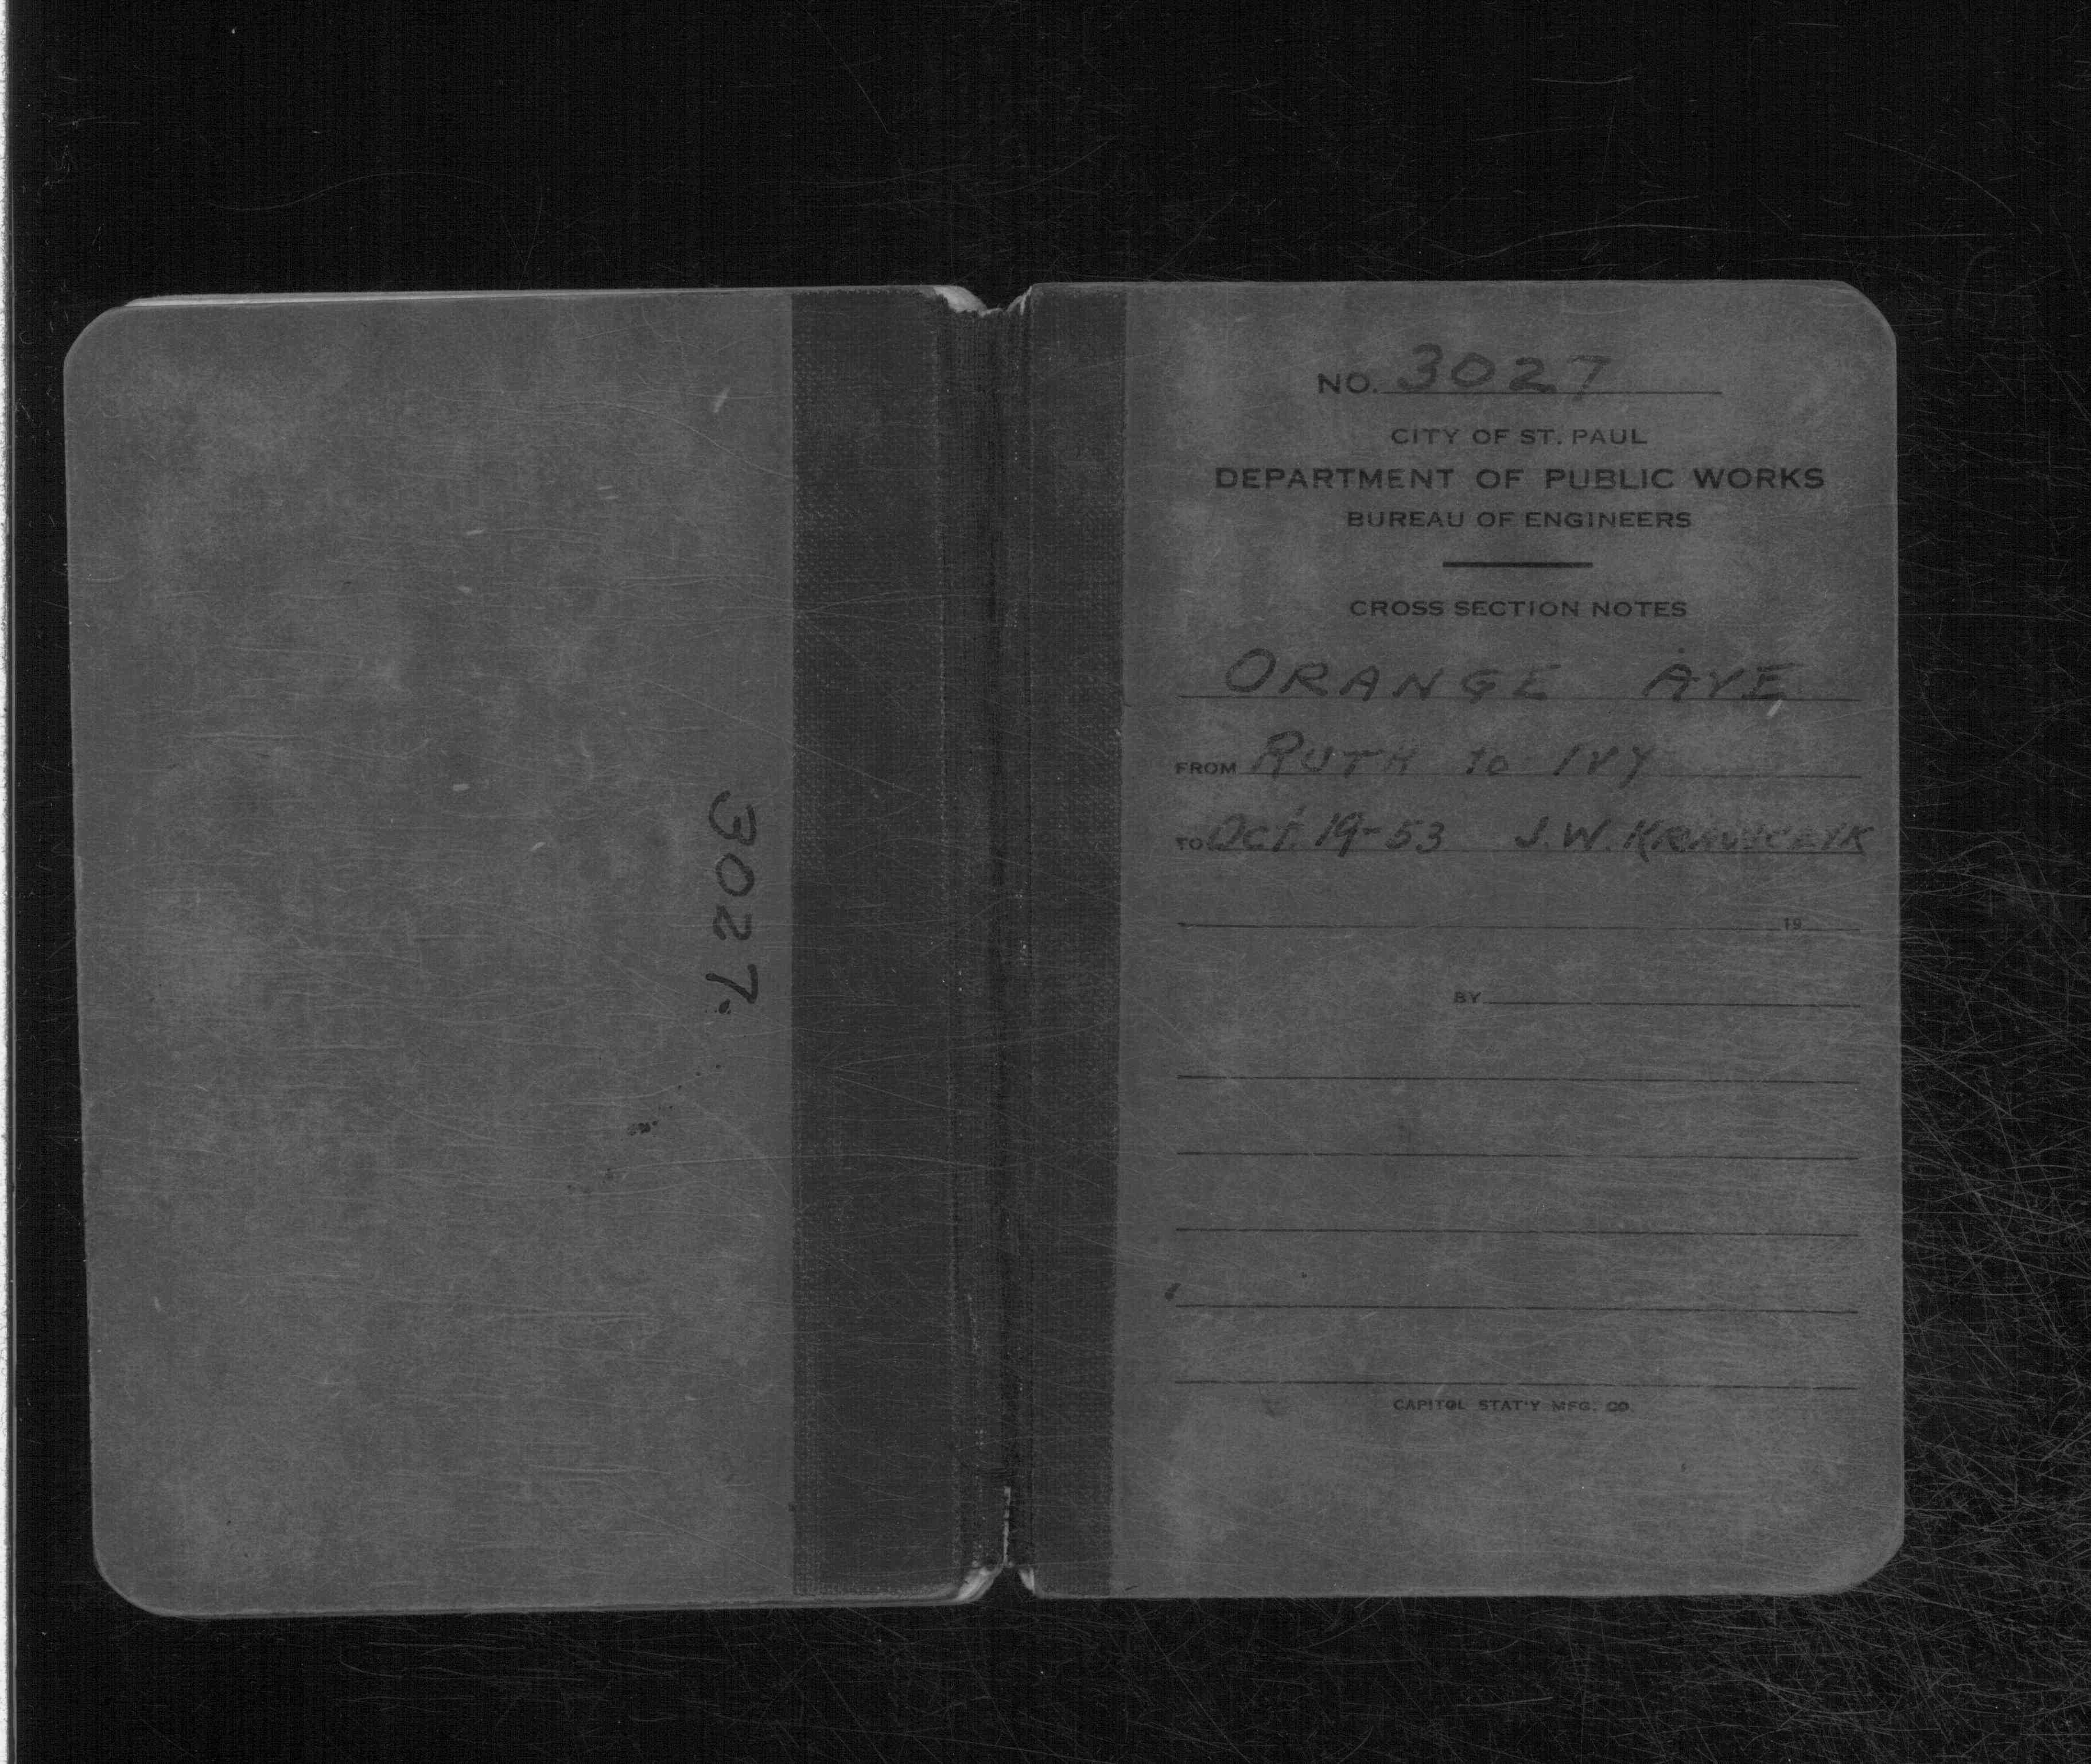 3027
NO. 3027
CITY OF ST. PAUL
DEPARTMENT OF PUBLIC WORKS
BUREAU OF ENGINEERS
CROSS SECTION NOTES
ORANGE AVE
FROM RUTH to IVY
TO Oct. 19-53 J.W. KRAWCZYK
19
BY
CAPITOL STAT'Y MFG. CO.